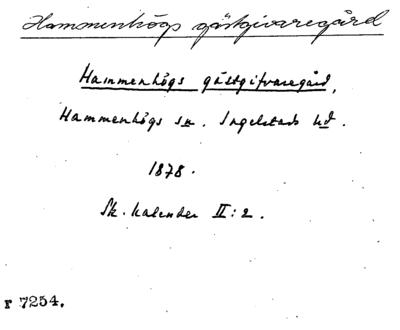 Hammenhögs gästgivaregård
Hammenhögs gästgifvaregård,
Hammenhögs sn. Ingelstads hd.
1878.
Sk. kalender II:2.
r 7254.